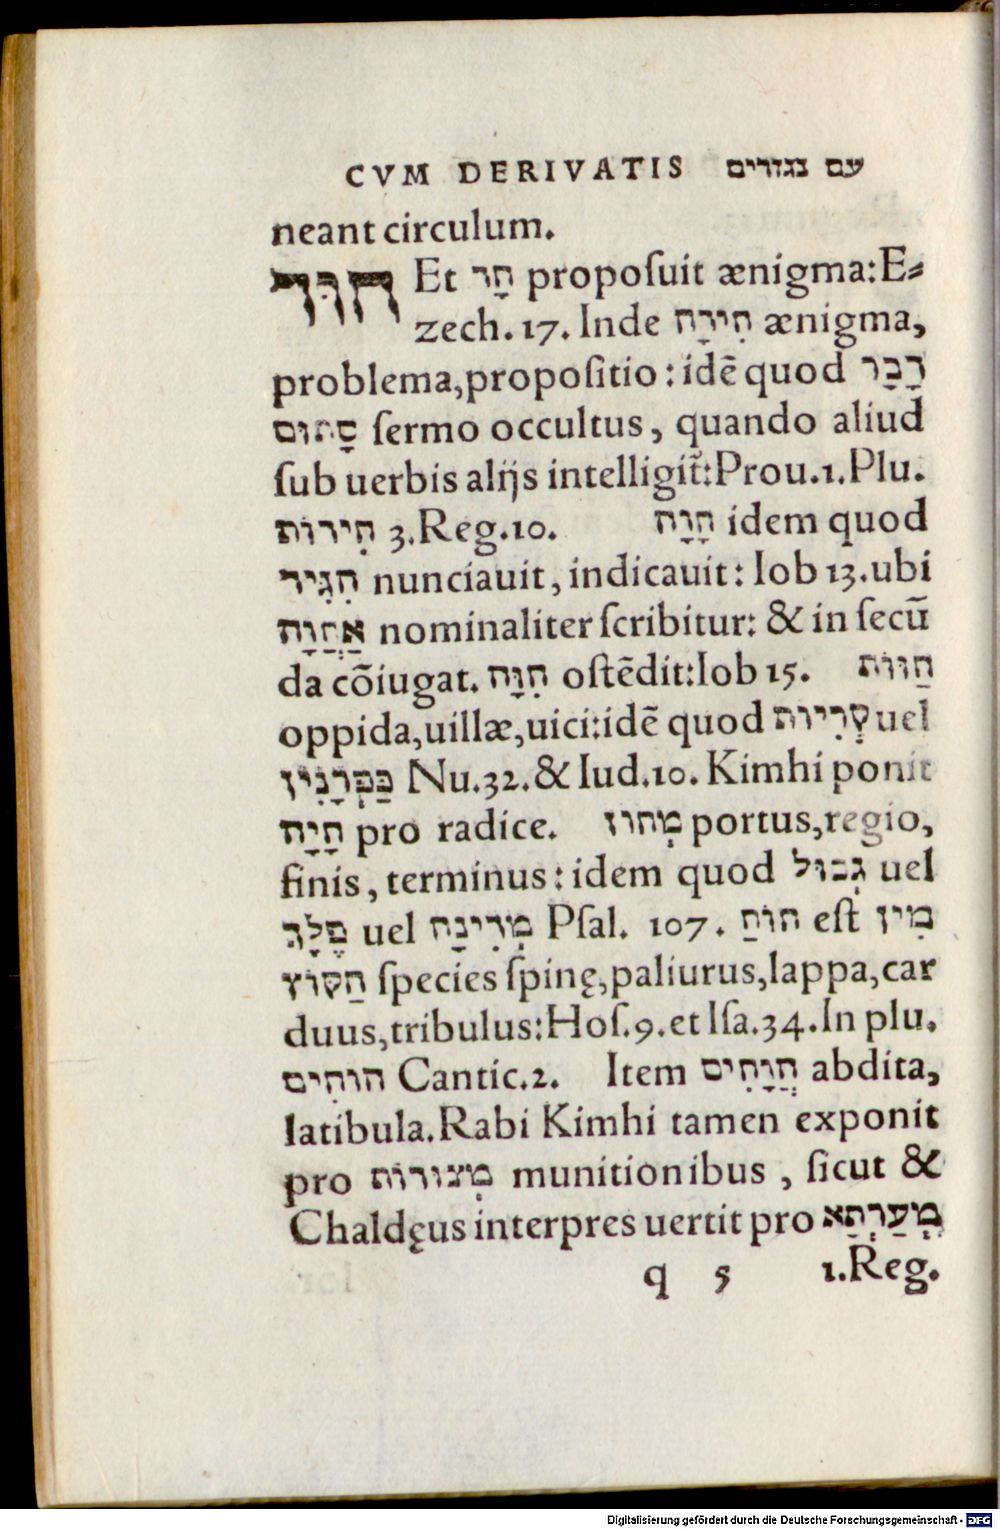 CVM DERIVATIS עם נגזרים
neant circulum.
Et חָד propoſuit ænigma:E⸗
zech.17.Inde חִידָה ænigma,
problema,propoſitio:idē quod דָבָר
סָתוּם ſermo occultus, quando aliud
ſub uerbis alijs intelligit̃:Prou.1.Plu.
חִידוֹת 3.Reg.10. חָוָה idem quod
הִגִּיד nunciauit, indicauit: Iob 13.ubi
אַחֲוָה nominaliter ſcribitur: & in ſecū
da cōiugat. חִוָּה oſtēdit:Iob 15. חַווֹת
oppida,uillæ,uici:idē quod קְרִיוֹת uel
כַּפְּרָנִין Nu.32.& Iud.10. Kimhi ponit
חָיָה pro radice. מְחוּז portus,regio,
finis, terminus: idem quod גְבוּל uel
פֶלֶךְ uel מְדִינָה Pſal. 107. חוֹחַ eſt מִין
הַקוֹץ ſpecies ſpinę,paliurus,lappa,car
duus,tribulus:Hoſ.9.et Iſa.34.In plu.
חוֹחִים Cantic.2. Item חֲוָחִים abdita,
latibula.Rabi Kimhi tamen exponit
pro מְצוּרוֹת munitionibus, ſicut &
Chaldęus interpres uertit pro מְעַרְתָא
q 5 1.Reg.
Digitalisierung gefördert durch die Deutsche Forschungsgemeinschaft - DFG